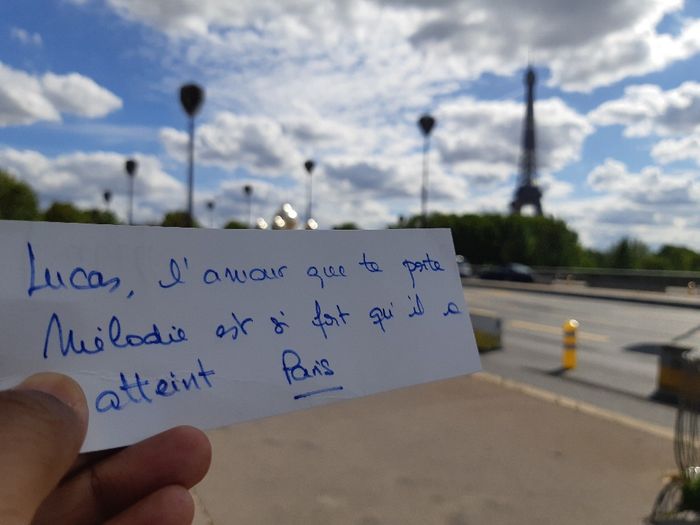 Lucas, l'amour que te porte
Mélodie est si fort qu'il a
atteint Paris